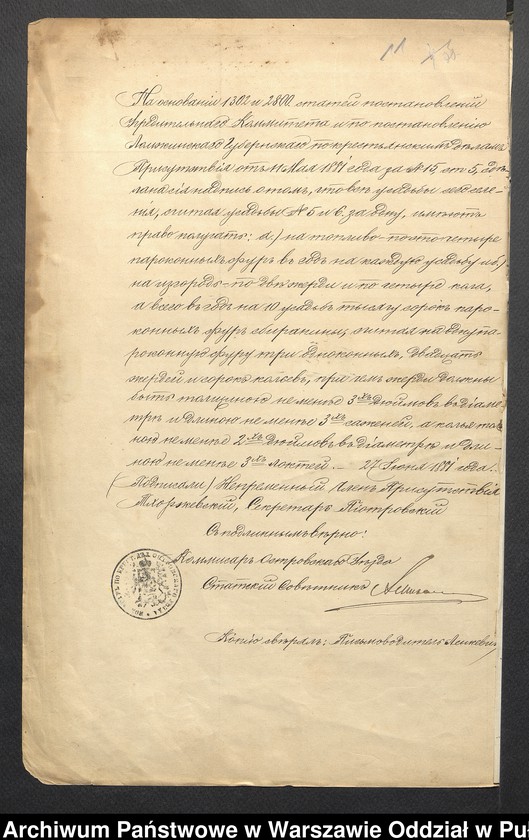 11
На основаніи 1302 и 2800 статей постановленій
Учредительнаго Комитета и по постановленію
Ломжинскаго Губернскаго по крестьянскимъ дѣламъ
Присутствія отъ 11 Мая 1891 года за № 15, ст. 5, сдѣ-
лана сія надпись о томъ, что всѣ усадьбы сей селе-
нія, считая усадьбы № 5 и 6 за одну, имѣютъ
право получать: а) на топливо по сто четыре
пароконныхъ фуръ въ годъ на каждую усадьбу и б)
на изгородь по двѣ жерди и по четыре кола,
а всего въ годъ на 10 усадьбъ тысячу сорокъ паро-
конныхъ фуръ збиранины, считая на одну па-
роконную фуру три одноконныхъ, двадцать
жердей и сорокъ кольевъ, при чемъ жерди должны
быть толщиною не менѣе 3хъ дюймовъ въ діаме-
трѣ и длиною не менѣе 3хъ саженей, а колья тол-
ною не менѣе 2хъ дюймовъ въ діаметрѣ и дли-
ною не менѣе 3хъ локтей. — 27 Іюня 1891 года.
(Подписали) Непремѣнный Членъ Присутствія
Тхоржевскій, Секретарь Піотровскій
Съ подлиннымъ вѣрно:
Коммисаръ Островскаго Уѣзда
Статскій Совѣтникъ
Копію свѣрялъ: Письмоводитель
Archiwum Państwowe w Warszawie Oddział w Pu